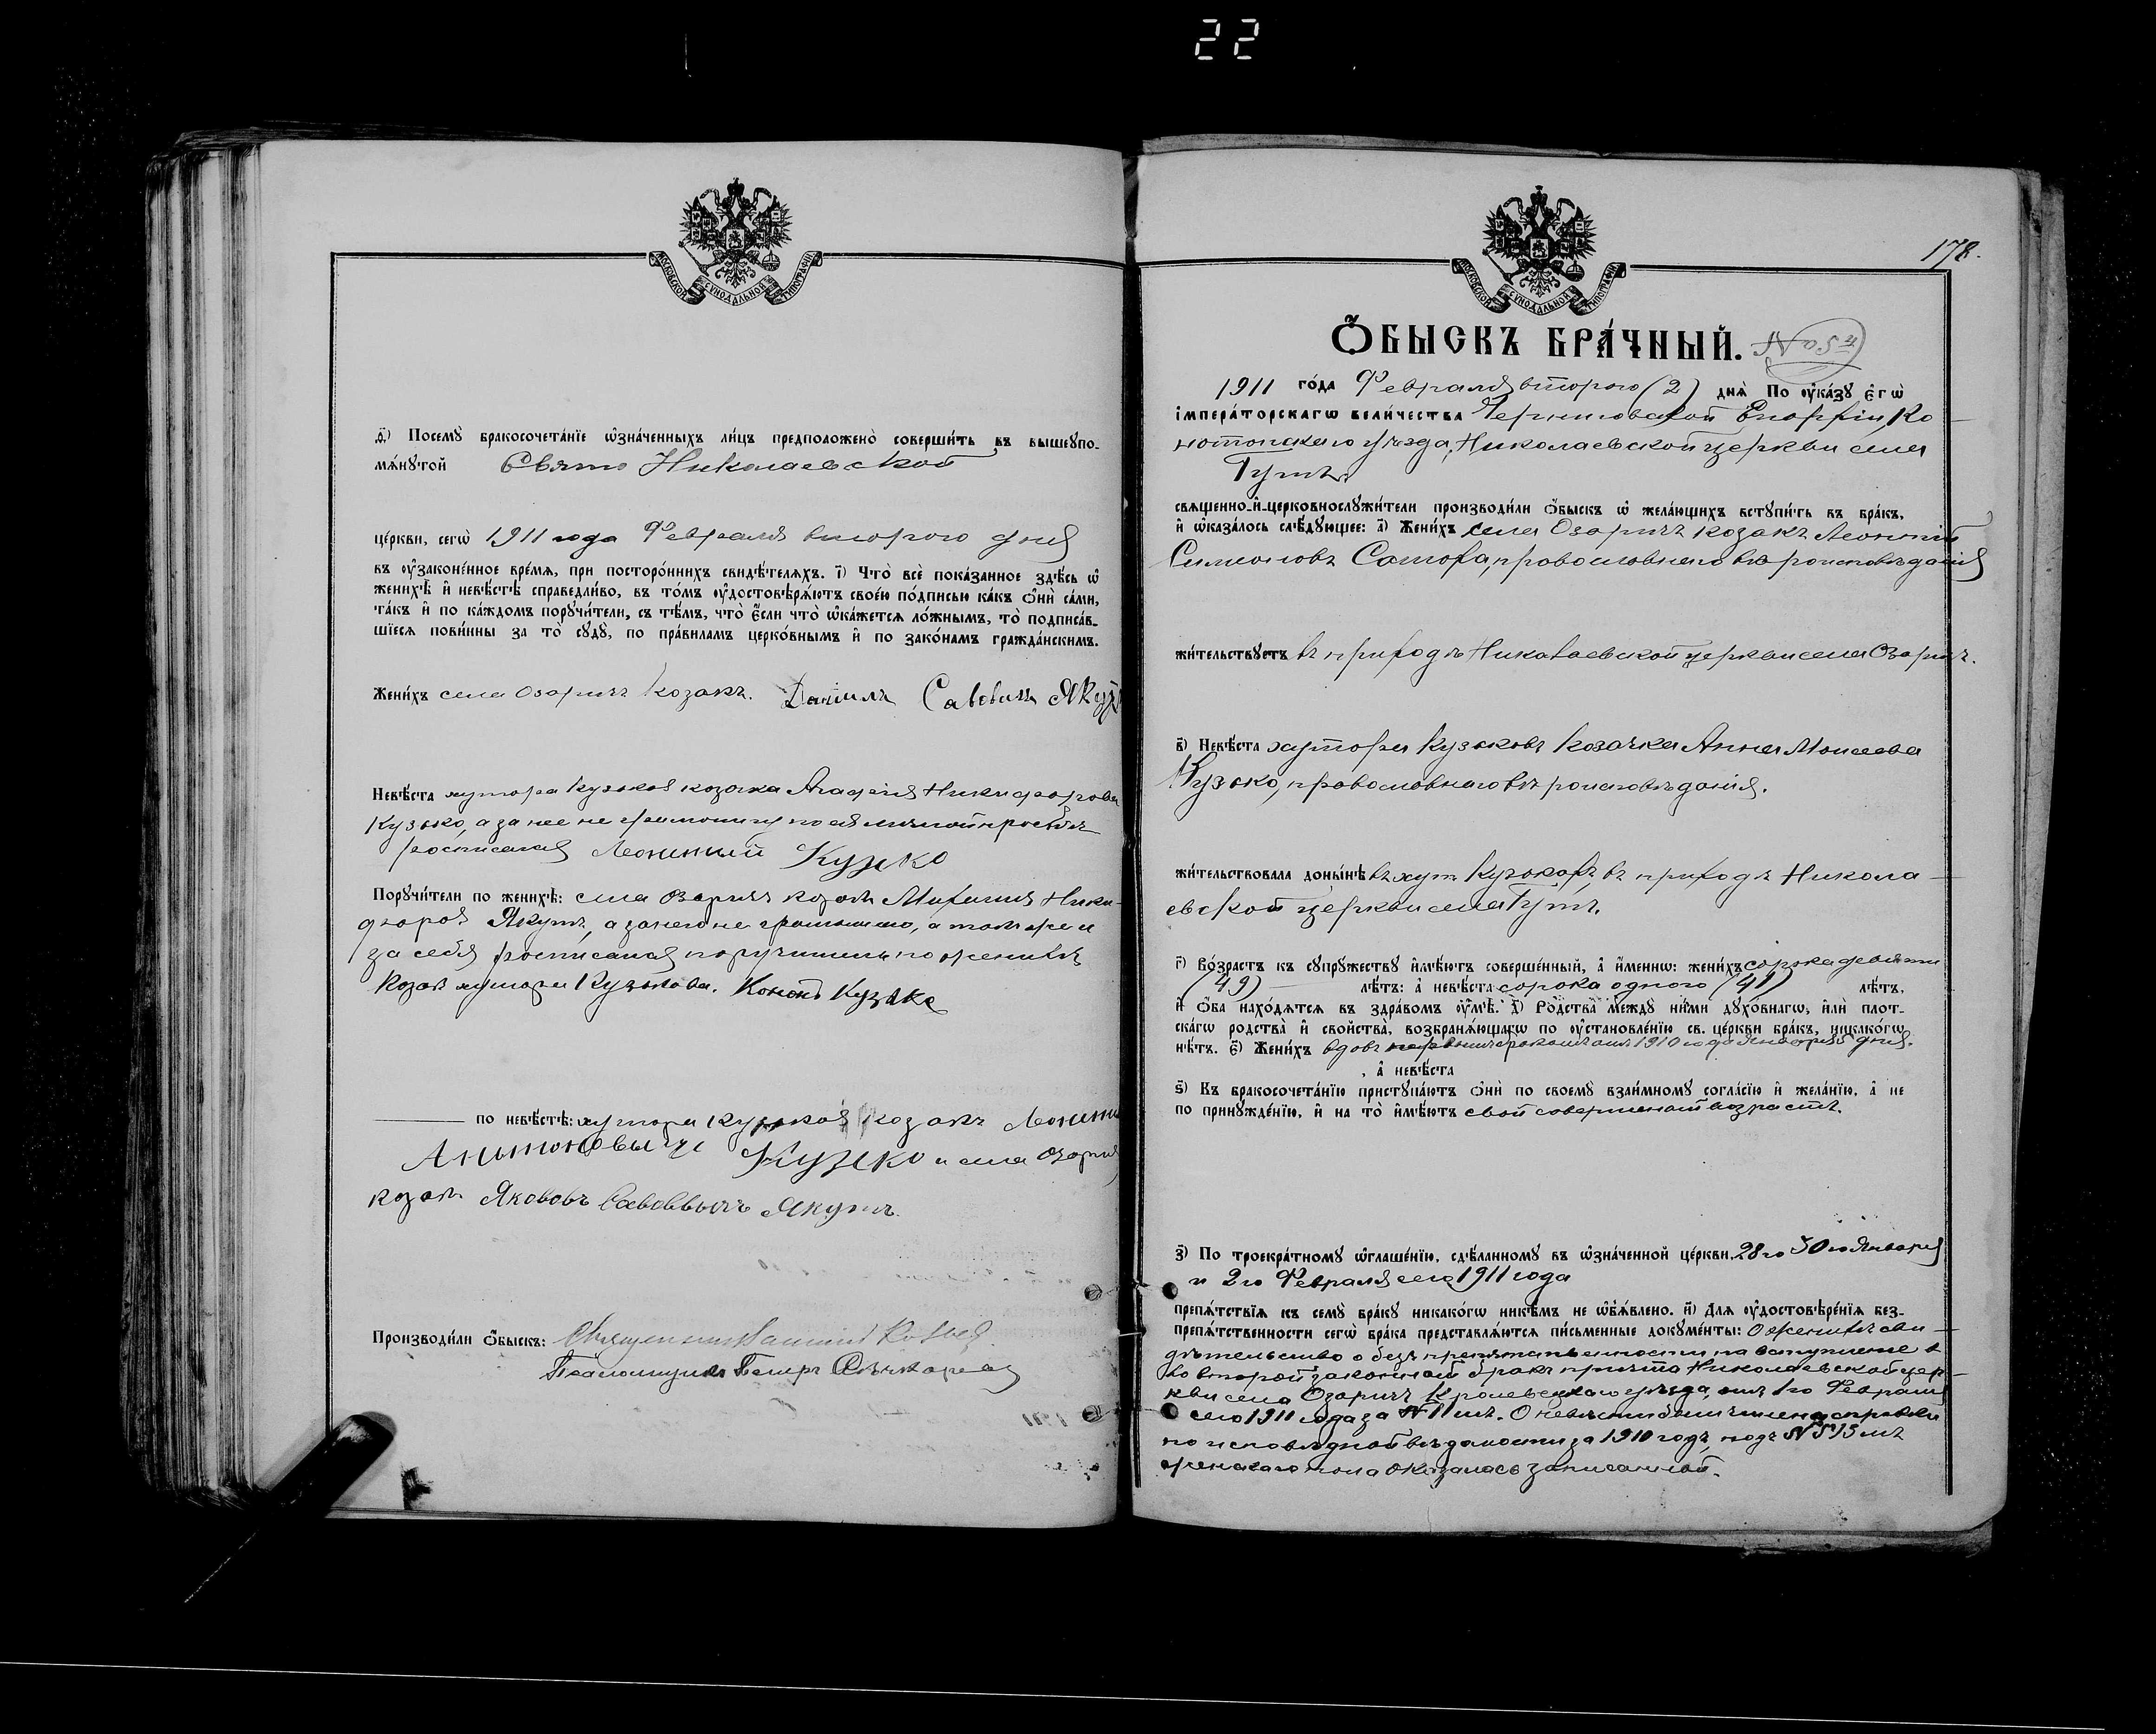 22
МОСКОВСКОЙ СУНОДАЛЬНОЙ ТИПОГРАФІИ
д҃) Посемꙋ̀ бракосочета́нїе ѡ҆зна́ченныхъ ли́цъ предположено̀ соверши́ть въ вышеупо-
мѧ́нꙋтой Свято Николаевской
це́ркви, сегѡ̀ 1911 года Февраля второго дня
въ ᲂу҆зако́ненное вре́мѧ, при посторо́ннихъ свидѣ́телѧхъ. і҃) Что̀ всѐ пока́занное здѣ́сь ѡ҆
женихѣ̀ и҆ невѣ́стѣ справедли́во, въ то́мъ ᲂу҆достовѣрѧ́ютъ свое́ю по́дписью ка́къ ѻ҆нѝ са́ми,
та́къ и҆ по ка́ждомъ порꙋчи́тели, съ тѣ́мъ, что̀ є҆́сли что̀ ѡ҆ка́жетсѧ ло́жнымъ, то̀ подписа́в-
шїесѧ пови́нны за то̀ сꙋдꙋ̀, по пра́виламъ церко́внымъ и҆ по зако́намъ гражда́нскимъ.
Жени́хъ села Озаричъ козакъ. Даніилъ Савовичъ Якут
Невѣ́ста хутора Кузьковъ козачка Агафія Никифорова
Кузько, а за нее не грамотну по ея личной просьбѣ
росписался Леонтий Кузко
Порꙋчи́тели по женихѣ̀: села Озаричъ козакъ Михаилъ Ники-
форовъ Якутъ, а за него не грамотного, а также и
за себя росписался поручитель по женихѣ
козакъ хутора Кузькова. Конон Кузько
по невѣ́стѣ: хутора Кузьков козакъ Леонти
Антоновычъ Кузко и села Озарич
козакъ Яковъ Савовичъ Якутъ
Производи́ли ѻ҆́быскъ: Священник
Псаломщикъ Петръ
178.
МОСКОВСКОЙ СУНОДАЛЬНОЙ ТИПОГРАФІИ
Ѻ҆́БЫСКЪ БРА́ЧНЫЙ. №5й
1911 го́да Февраля второго (2) днѧ̀ По ᲂу҆ка́зꙋ є҆гѡ̀
і҆мпера́торскагѡ вели́чества Черниговской Епархіи, Ко-
нотопского уѣзда, Николаевской церкви села
Гутъ
свѧщенно-и҆-церковнослꙋжи́тели производи́ли ѻ҆́быскъ ѡ҆ жела́ющихъ встꙋпи́ть въ бра́къ,
и҆ ѡ҆каза́лось слѣ́дꙋющее: а҃) Жени́хъ села Озаричъ козакъ Леонтій
Симоновъ Самоха, православного вѣроисповѣданія
жи́тельствꙋетъ въ приходѣ Николаевской церкви села Озаричъ.
в҃) Невѣ́ста хутора Кузьковъ козачка Анна Моисеева
Кузько, православного вѣроисповѣданія.
жи́тельствовала доны́нѣ въ хут Кузькахъ въ приходѣ Никола-
евской церкви села Гутъ.
г҃) Во́зрастъ къ сꙋпрꙋ́жествꙋ и҆мѣ́ютъ соверше́нный, а҆ и҆́меннѡ: жени́хъ сорока девяти
(49) лѣ́тъ: а҆ невѣ́ста сорока одного (41) лѣ́тъ,
и҆ ѻ҆́ба нахо́дѧтсѧ въ здра́вомъ ᲂу҆мѣ̀. д҃) Ро́дства междꙋ̀ ни́ми дꙋхо́внагѡ, и҆лѝ плот-
ска́гѡ родства̀ и҆ сво́йства̀, возбранѧ́ющагѡ по ᲂу҆становле́нїю св. це́ркви бра́къ, никако́гѡ
нѣ́тъ. є҃) Жени́хъ вдовъ первымъ бракомъ отъ 1910 года дня.
, а҆ невѣ́ста
ѕ҃) Къ бракосочета́нїю пристꙋпа́ютъ ѻ҆нѝ по своемꙋ̀ взаи́мномꙋ согла́сїю и҆ жела́нїю, а҆ не
по принꙋжде́нїю, и҆ на то̀ и҆мѣ́ютъ свой совершенный возрастъ.
з҃) По троекра́тномꙋ ѡ҆глаше́нїю, сдѣ́ланномꙋ въ ѡ҆зна́ченной це́ркви 28го 30го Января
и 2го Февраля сего 1911 года
препѧ́тствїѧ къ семꙋ̀ бра́кꙋ никако́гѡ никѣ́мъ не ѡ҆б̾ѧ́влено. и҃) Длѧ ᲂу҆достовѣре́нїѧ без-
препѧ́тственности сегѡ̀ бра́ка представлѧ́ютсѧ пи́сьменные докꙋме́нты: О женихѣ сви-
дѣтельство о безпрепятственности на вступленіе
во второй законный бракъ причта Николаевской цер-
кви села Озаричъ Кролевецкого уѣзда, отъ 1го Февраля
сего 1911 года за №11мъ. О невѣсти справки
по исповѣдной вѣдомости за 1910 годъ, подъ №
женского пола оказалась записанной.